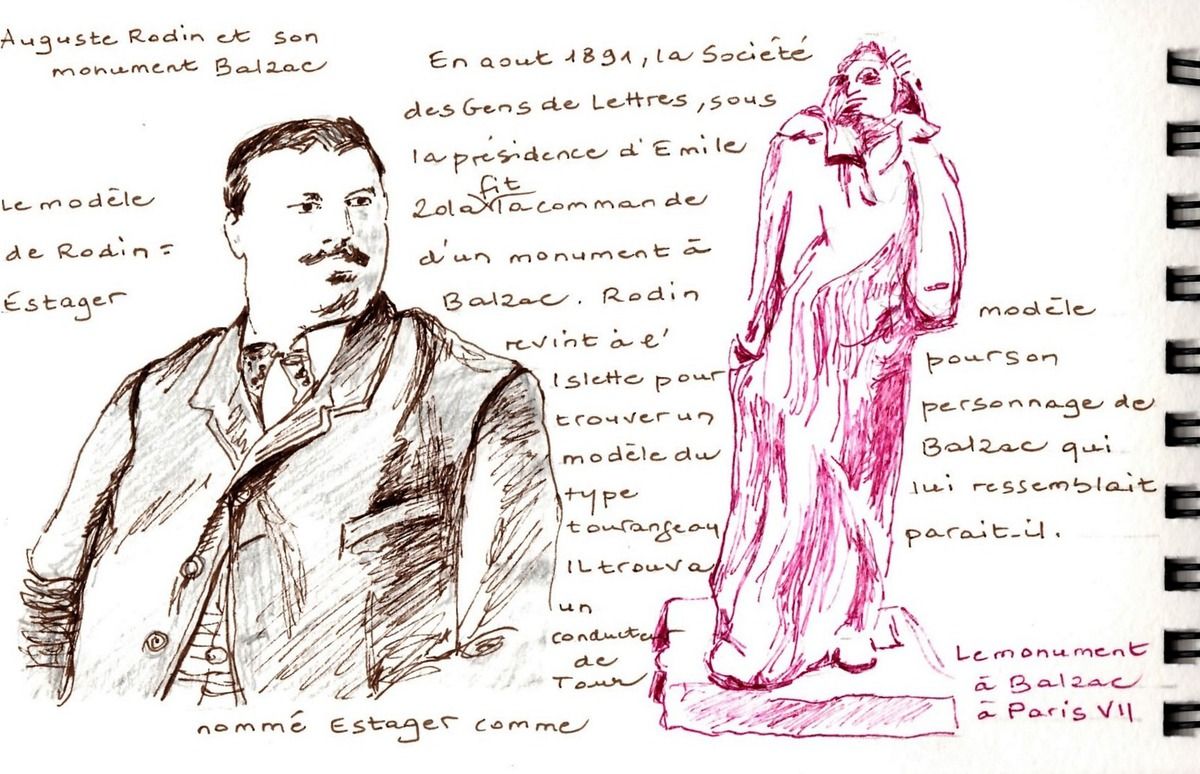 Auguste Rodin et son
monument Balzac
Le modèle
de Rodin =
Estager
En aout 1891, la Société
des Gens de Lettres, sous
la présidence d'Emile
Zola fit la commande
d'un monument à
Balzac. Rodin
revint à l'
Islette pour
trouver un
modèle du
type
tourangeau
Il trouva
un
conducteur
de
Tour
nommé Estager comme
modèle
pour son
personnage de
Balzac qui
lui ressemblait
parait-il.
Le monument
à Balzac
à Paris VII